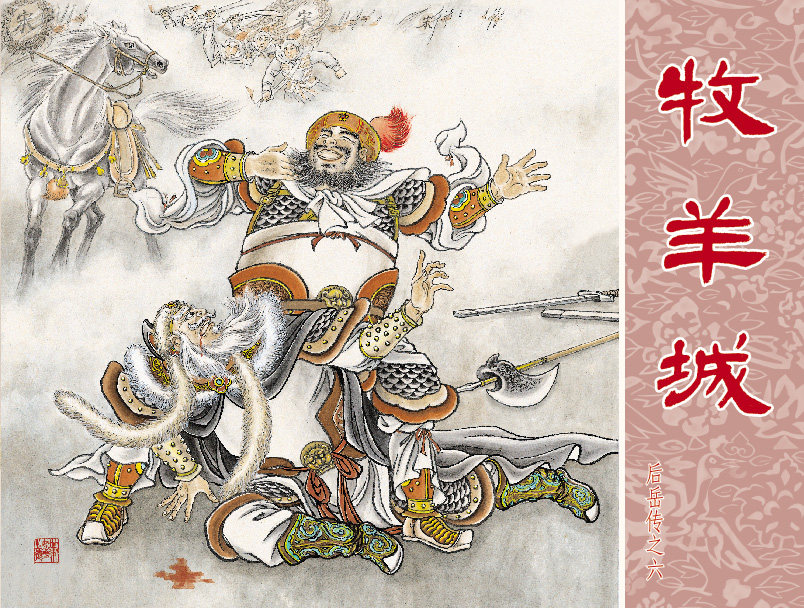 牧羊城
后岳传之六
宋
宋